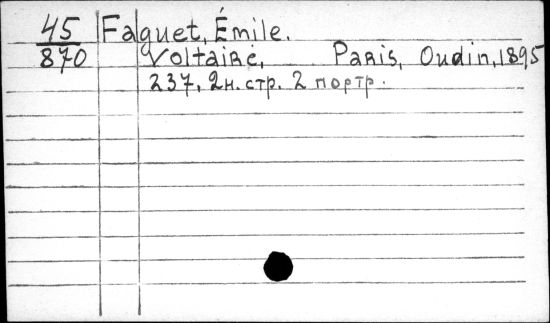 45 Faguet, Émile.
870 Voltaire, Paris, Oudin, 1895
237, 2н. стр. 2 портр.